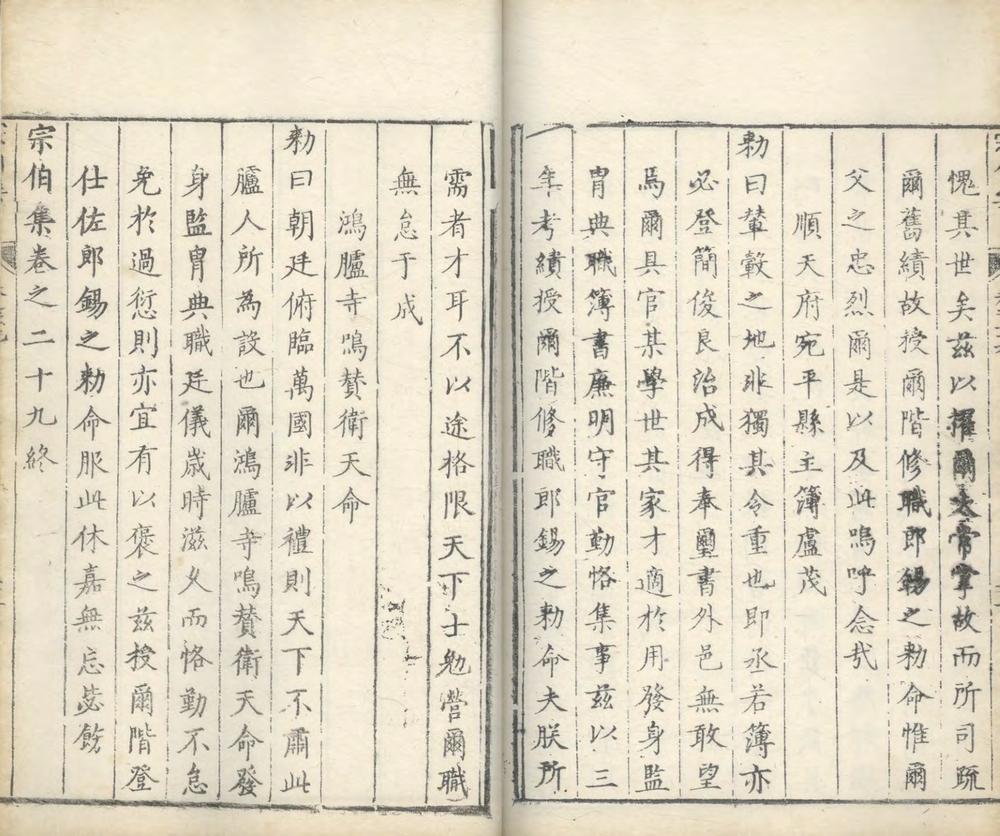 愧其世矣茲以擢爾太常掌故而所司疏
爾舊績故授爾階修職郎錫之勑命惟爾
父之忠烈爾是以及此嗚呼念哉
順天府宛平縣主簿盧茂
勑曰輦轂之地非獨其令重也即丞若簿亦
必登簡俊良治成得奉璽書外邑無敢望
焉爾具官某學世其家才適於用發身監
胄典職簿書廉明守官勤恪集事茲以三
年考績授爾階修職郎錫之勑命夫朕所
需者才耳不以途格限天下士勉營爾職
無怠于成
鴻臚寺鳴贊衛天命
勑曰朝廷俯臨萬國非以禮則天下不肅此
臚人所為設也爾鴻臚寺鳴贊衛天命發
身監胄典職廷儀歲時滋久而恪勤不怠
免於過愆則亦宜有以褒之茲授爾階登
仕佐郎錫之勑命服此休嘉無忘毖飭
宗伯集卷之二十九終